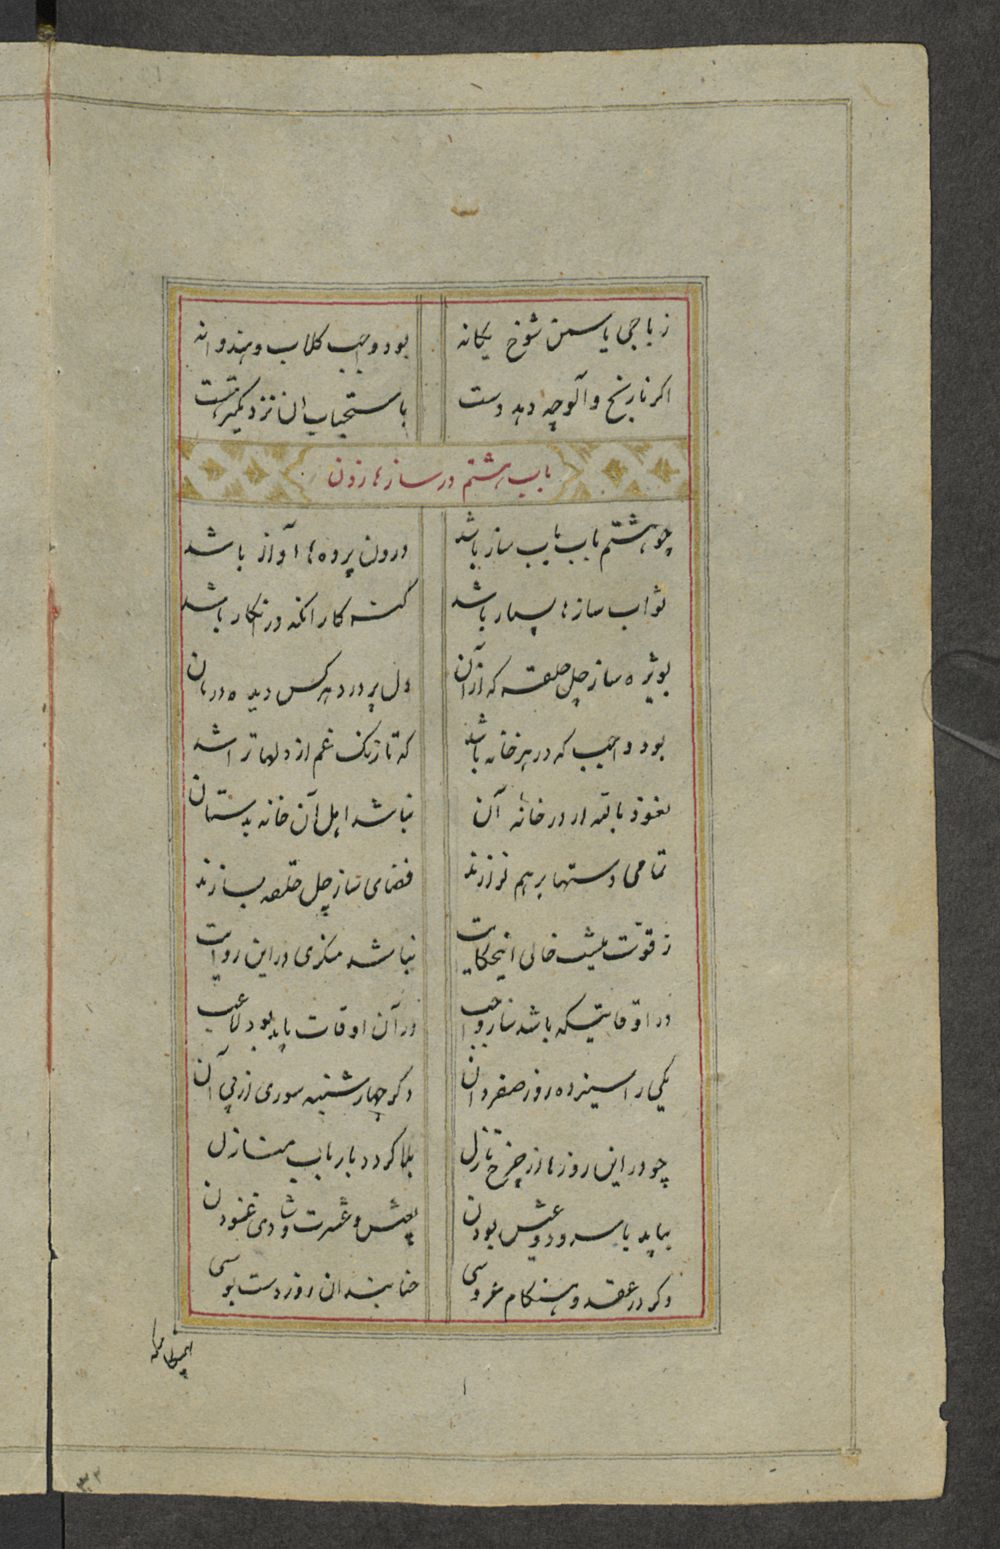 زباجی یاسمن شوخ یکانه بود واجب کلاب و هندوانه
اکر نارنج و آلوچه دهد دست باستحباب ان نزدیکتر هست
باب هشتم در سازها زدن
چو هشتم باب باب ساز باشد درون پرده ها آواز باشد
ثواب سازها بسیار باشد کنه کار انکه در انکار باشد
بویژه ساز چل حلقه که از آن دل پر درد هر کس دیده درمان
بود واجب که در هر خانه باشد که تا زنک غم از دلها تراشد
نعوذ بالله ار در خانه آن نباشد اهل آن خانه بدستان
تمامی دستها بر هم نوازند فضای ساز چل حلقه بسازند
ز قوت نیست خالی اینحکایت نباشد منکری در این روایت
در اوقاتیکه باشد ساز واجب در آن اوقات باید بود لاعب
یکی را سیزده روز صفر دان دکر چهارشنبه سوری از پی آن
چو در این روزها از چرخ نازل بلا کردد بارباب منازل
بباید با سرود و عیش بودن بعیش و عشرت و شادی غنودن
دکر در عقد و هنکام عروسی حنا بندان روز دست بوسی
بهنکام
۳۲